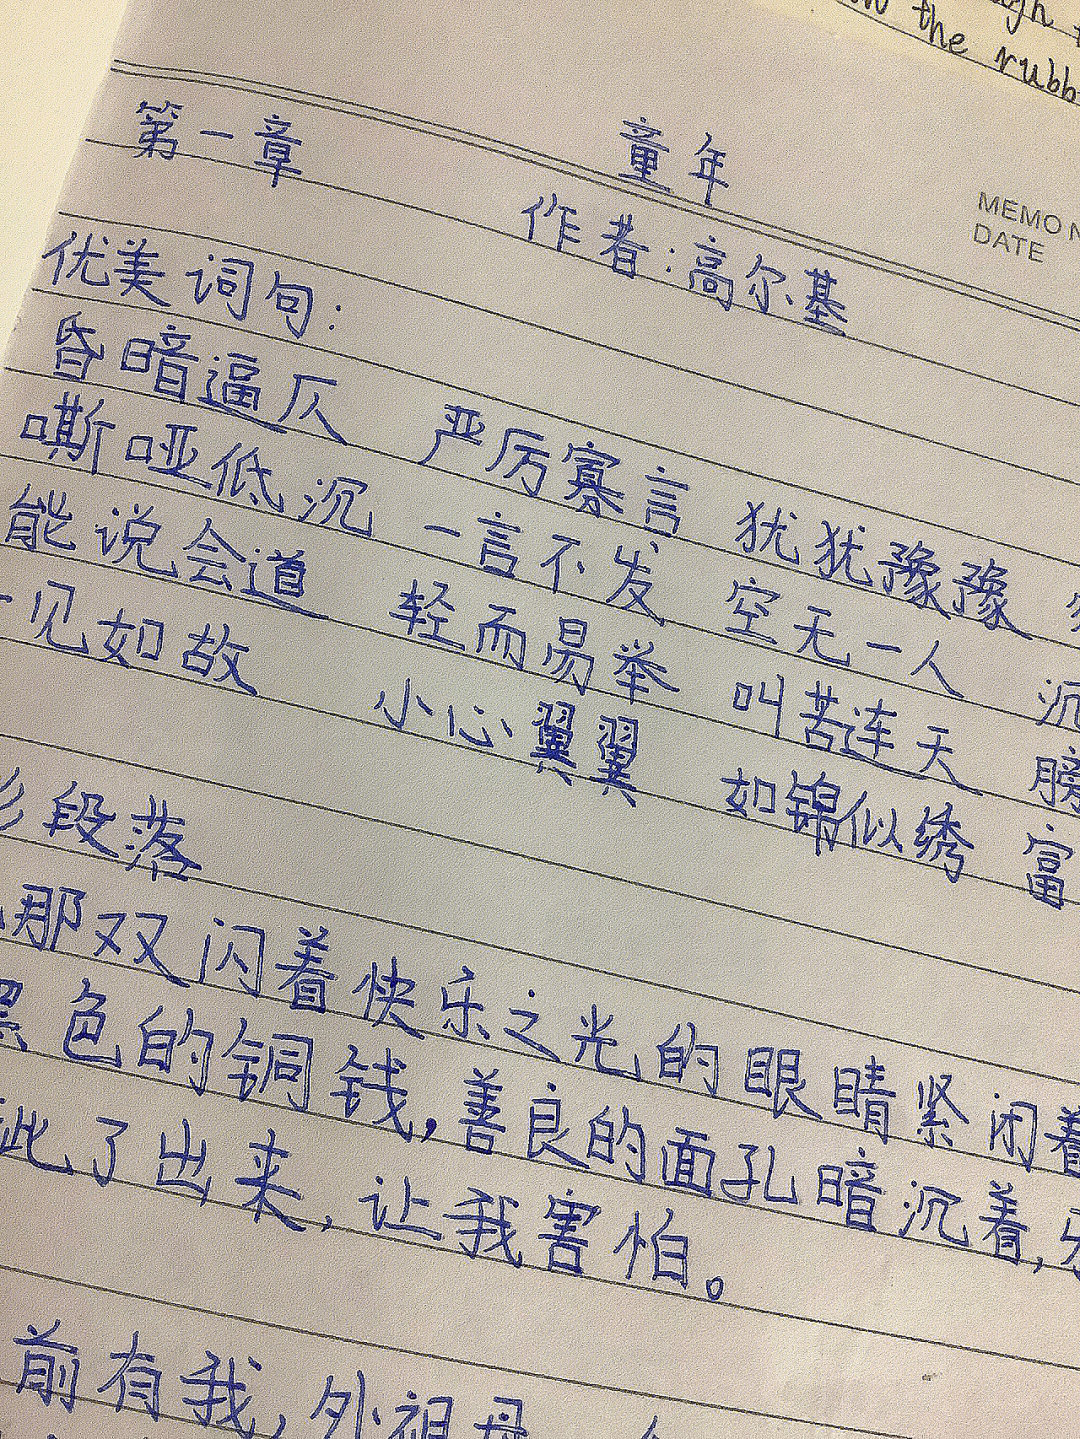 the rubb
童年
MEMO N
DATE
第一章
作者：高尔基
优美词句：
昏暗逼仄 严厉寡言 犹犹豫豫
嘶哑低沉 一言不发 空无一人 沉
能说会道 轻而易举 叫苦连天 膀
一见如故 小心翼翼 如锦似绣 富
段落
那双闪着快乐之光的眼睛紧闭着
黑色的铜钱，善良的面孔暗沉着，
此了出来，让我害怕。
前有我，外祖母